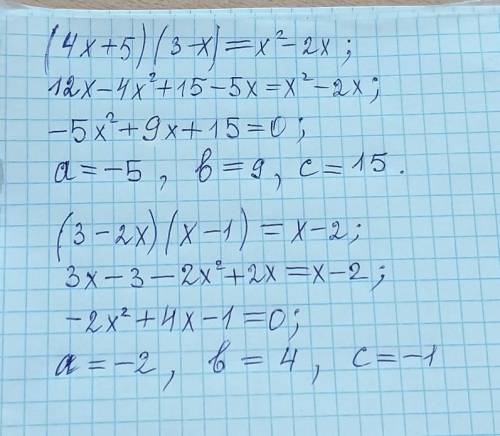 (4x+5)(3-x)=x²-2x;
12x-4x²+15-5x=x²-2x;
-5x²+9x+15=0;
a=-5, в=9, c=15.
(3-2x)(x-1)=x-2;
3x-3-2x²+2x=x-2;
-2x²+4x-1=0;
a=-2, в=4, c=-1